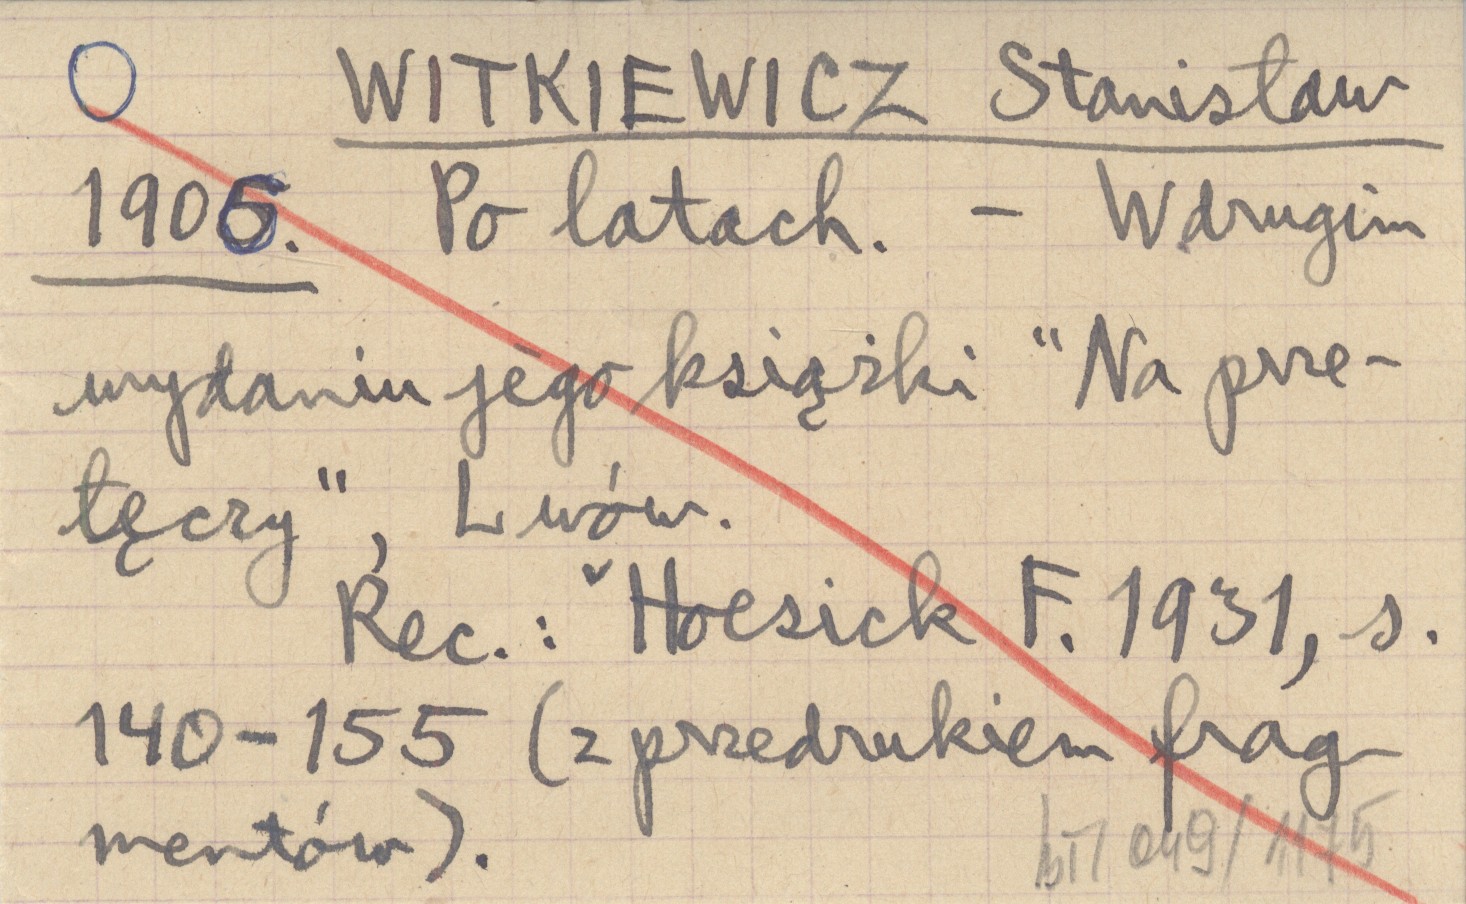 WITKIEWICZ Stanisław
1906. Po latach. - W drugim
wydaniu jego książki "Na prze-
tęczy", Lwów.
Rec.: Hoesick F. 1931, s.
140-155 (z przedrukiem frag-
mentów).